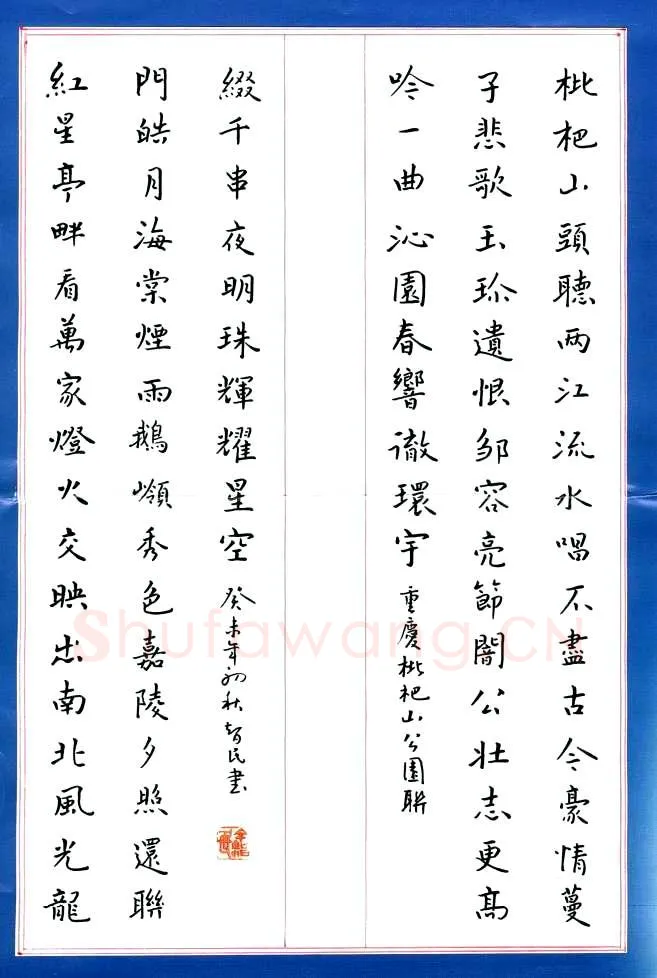 枇杷山頭聽两江流水唱不盡古今豪情蔓
子悲歌玉珍遺恨邹容亮節闇公壯志更高
吟一曲沁園春響徹環宇
重慶枇杷山公園联
紅星亭畔看萬家燈火交映出南北風光龍
門皓月海棠煙雨鵝嶺秀色嘉陵夕照還聯
綴千串夜明珠輝耀星空
癸未年初秋智民書
Shufawang.CN